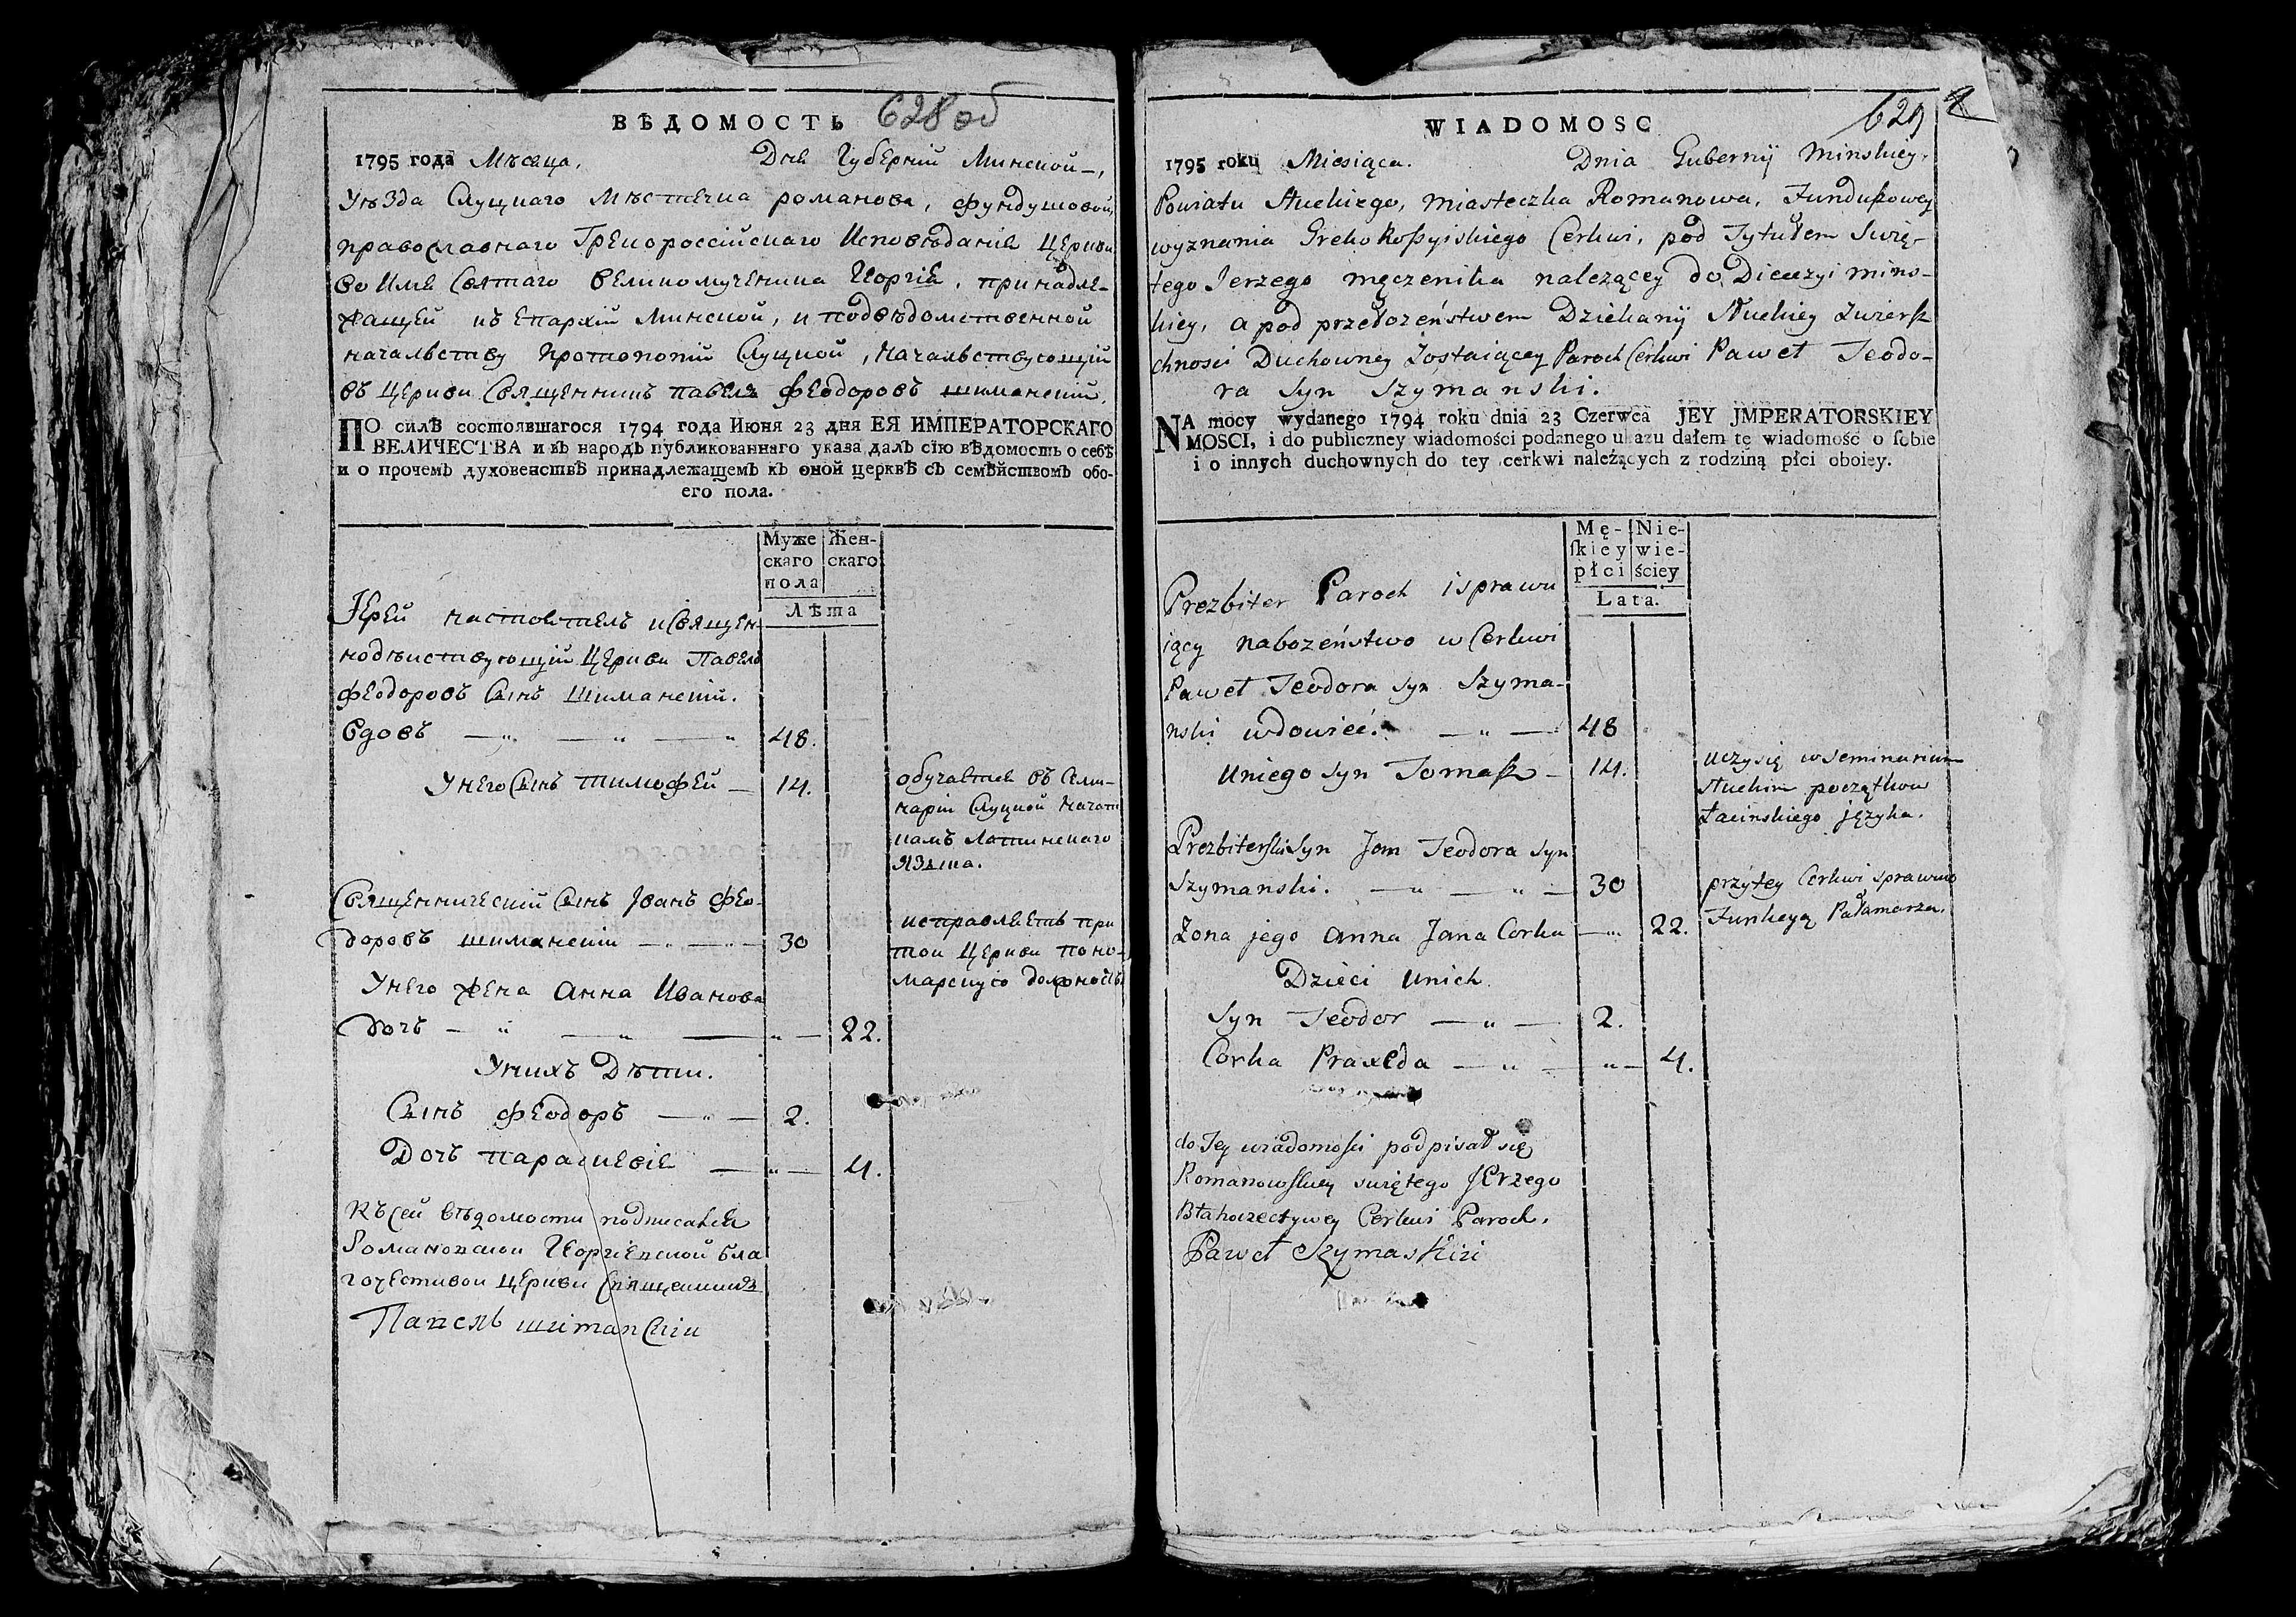 ВѢДОМОСТЬ 628 об
1795 года Мѣсяца, Дня Губерніи Минской,
Уѣзда Слуцкаго Мѣстечка Романова, Фундушовой
православнаго Грекороссійскаго Исповѣданія Церкви
во Имя Святаго Великомученика Георгія, принадле-
жащей къ Епархіи Минской, и подвѣдомственной
начальству Протопопіи Слуцкой, Начальствующій
въ Церкви Священникъ Павелъ Феодоровъ Шиманскій.
ПО силѣ состоявшагося 1794 года Июня 23 дня ЕЯ ИМПЕРАТОРСКАГО
ВЕЛИЧЕСТВА и въ народъ публикованнаго указа далъ сію вѣдомость о себѣ
и о прочемъ духовенствѣ принадлежащемъ къ оной церквѣ съ семѣйствомъ обо-
его пола.
Муже Жен-
скаго скаго
пола
Лѣта
Іерей настоятель и Священ-
нодѣиствующій Церкви Павелъ
Феодоровъ Сынъ Шиманскій.
Вдовъ — „ — „ — „ 48.
У него Сынъ Тимофей — 14. обучается въ Семи-
наріи Слуцкой Начат-
камъ Латинскаго
Языка.
Священническій Сынъ Іванъ Фео-
доровъ Шиманскій — „ — 30 исправляетъ при
той Церкви поно-
марскую должность
У него жена Анна Иванова
дочь — „ — „ — „ — 22.
У нихъ Дѣти.
Сынъ Феодоръ — „ — 2.
Дочь Параскевія — „ — 4.
Къ сей вѣдомости подписался
Романовской Георгіевской бла
гочестивои Церкви Священникъ
Павелъ Шіманскій
WIADOMOSC 629
1795 roku Miesiąca. Dnia Gubernij Minskiey,
Powiatu Słuckiego, Miasteczka Romanowa, Funduszowey
wyznania Greko Rossyiskiego Cerkwi, pod Tytułem Swię-
tego Jerzego męczenika należącey do Dieczyi mins-
kiey, a pod przełożeństwem Dziekanij Słuckiey Zwiersz
chnosci Duchowney Zostaiącey Paroch Cerkwi Paweł Teodo-
ra Syn Szymanski.
NA mocy wydanego 1794 roku dnia 23 Czerwca JEY JMPERATORSKIEY
MOSCI, i do publiczney wiadomości podanego ukazu dałem tę wiadomość o sobie
i o innych duchownych do tey cerkwi należących z rodziną płci oboiey.
Mę- Nie-
skiey wie-
płci ściey
Lata.
Prezbiter Paroch i sprawu
iący nabożeństwo w Cerkwi
Paweł Teodora Syn Szyma-
nski wdowieć. — „ — 48
U niego Syn Tomasz — 14. uczy się w Seminarium
Słuckim początkow
Łacinskiego języka.
Prezbiterski Syn Jan Teodora Syn
Szymanski. — „ — „ — 30 przy tey Cerkwi sprawuie
Funkcyą Pałamarza.
Żona jego Anna Jana Corka — „ 22.
Dzieci u nich.
Syn Teodor — „ — 2.
Corka Praxeda — „ — „ — 4.
do Tey wiadomości podpisał się
Romanowskiey swiętego Jerzego
Błahoczestywey Cerkwi Paroch.
Paweł Szymaskiri